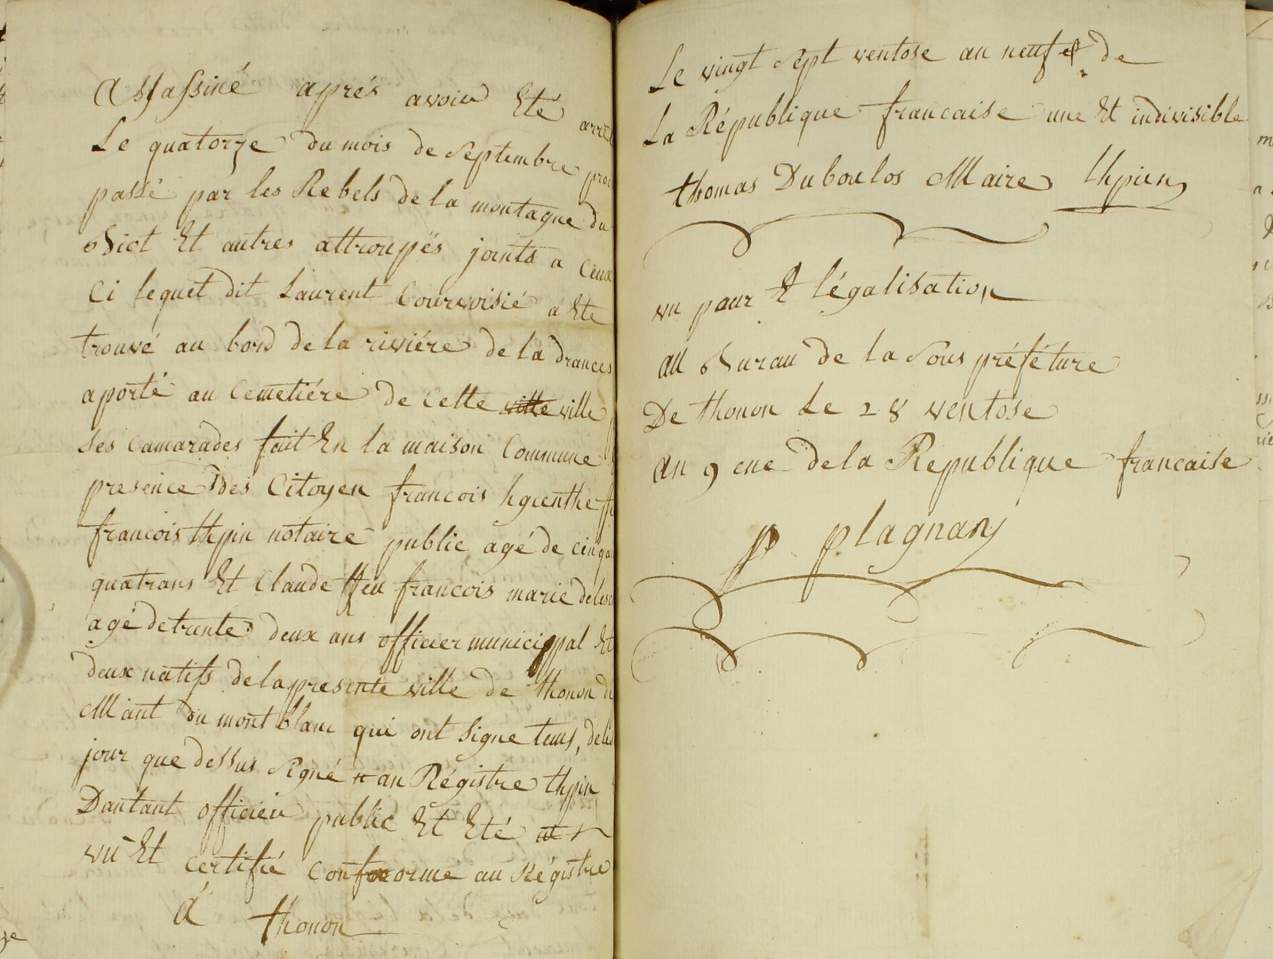 Assassiné aprés avoir Eté
Le quatorze du mois de Septembre
passé par les Rebels de la montagne du
Biot Et autres attroupés joints a Ceux
Ci lequel dit Laurent Courvoisié á Ete
trouvé au bord de la riviére de la drances
aporté au Cemetiére de Cette ville ville
Ses Camarades fait En la maison Commune
presence Des Citoyen francois hyienthe
francois thpin notaire public agé de
quatrans Et Claude ffeu francois marie
agé detrente deux ans officier municippal Et
deux natifs delapresente ville de thonon
Mant du mont blanc qui ont Signe tous,
jour que dessus Signé au Régistre thpin
Dantant officier public Et Eté
vû Et certifié Conforme au Régistre
á thonon
Le vingt Sept ventose an neuf de
La République francaise une Et indivisible
thomas Duboulos Maire thpin
vu paur Et légalisation
au Burau de la Sous préféture
De thonon Le 28 ventose
an 9 ene dela Republique francaise
plagnay